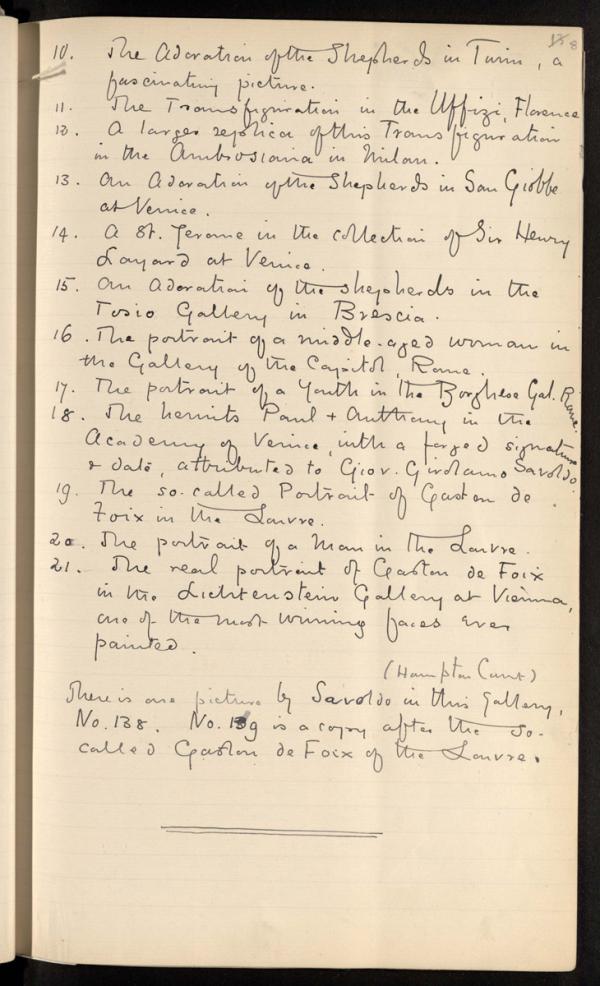 10. The Adoration of the Shepherds in Turin, a
fascinating picture.
11. The Transfiguration in the Uffizi, Florence
12. A larger replica of this Transfiguration
in the Ambrosiana in Milan.
13. An Adoration of the Shepherds in San Giobbe
at Venice.
14. A St. Jerome in the collection of Sir Henry
Layard at Venice.
15. An Adoration of the shepherds in the
Tosio Gallery in Brescia.
16. The portrait of a middle-aged woman in
the Gallery of the Capitol, Rome.
17. The portrait of a Youth in the Borghese Gal. Rome.
18. The hermits Paul + Anthony in the
Academy of Venice, with a forged signature
& date, attributed to Giov. Girolamo Savoldo.
19. The so-called Portrait of Gaston de
Foix in the Louvre.
20. The portrait of a Man in the Louvre.
21. The real portrait of Gaston de Foix
in the Lichtenstein Gallery at Vienna,
one of the most winning faces ever
painted.
(Hampton Court)
There is one picture by Savoldo in this gallery,
No. 138. No. 139 is a copy after the so-
called Gaston de Foix of the Louvre.